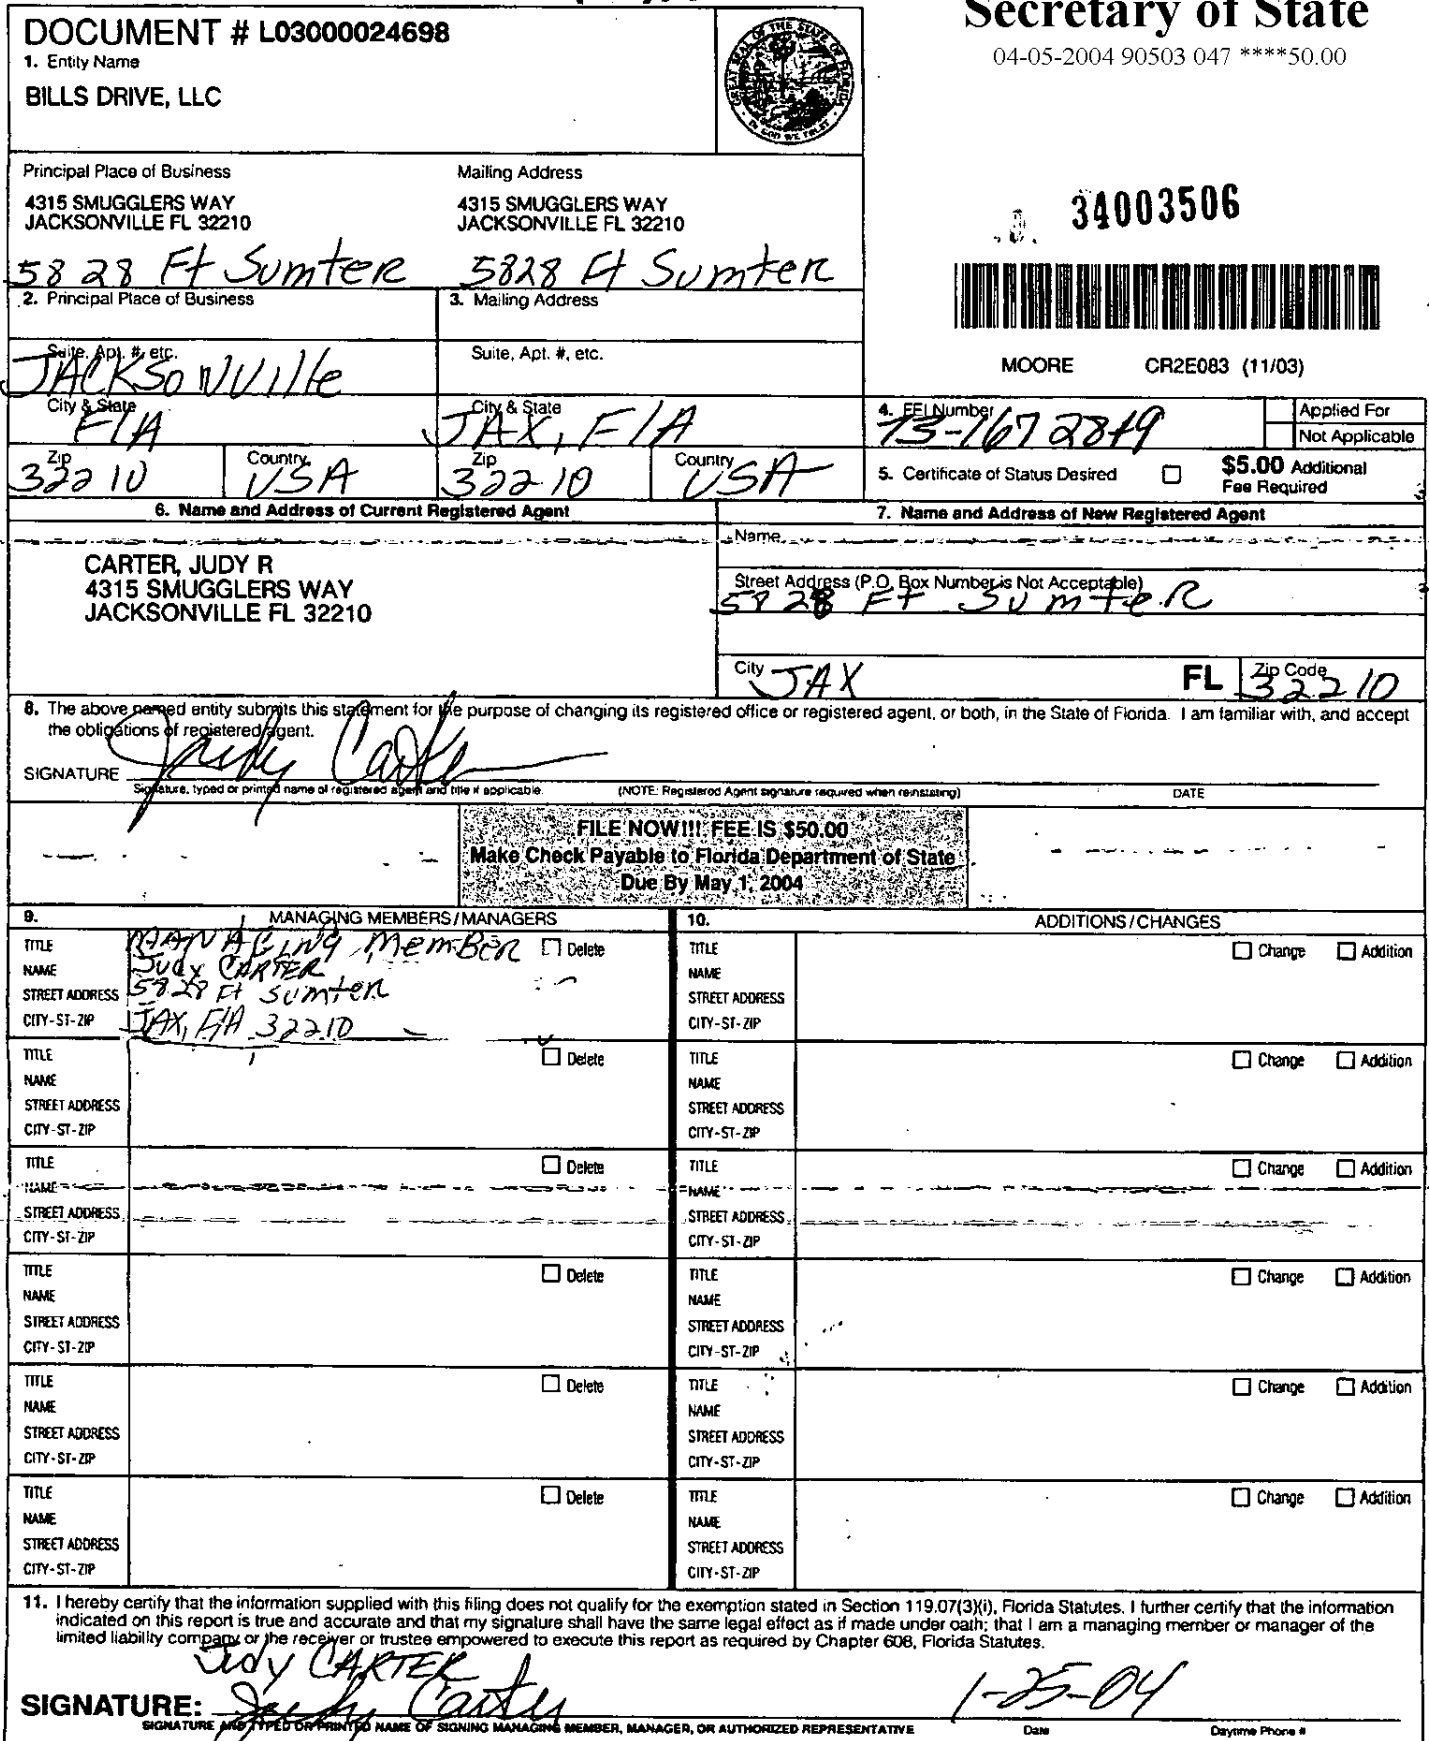 Secretary of State
04-05-2004 90503 047 ****50.00
DOCUMENT # L03000024698
1. Entity Name
BILLS DRIVE, LLC
GREAT SEAL OF THE STATE OF FLORIDA
IN GOD WE TRUST
Principal Place of Business
Mailing Address
4315 SMUGGLERS WAY
JACKSONVILLE FL 32210
4315 SMUGGLERS WAY
JACKSONVILLE FL 32210
34003506
5828 Ft Sumter
5828 Ft Sumter
2. Principal Place of Business
3. Mailing Address
Suite, Apt. #, etc.
JACKSONVIlle
Suite, Apt. #, etc.
MOORE CR2E083 (11/03)
City & State
FlA
City & State
JAX, FlA
4. FEI Number
Applied For
Not Applicable
Zip
32210
Country
USA
Zip
32210
Country
USA
5. Certificate of Status Desired
$5.00 Additional
Fee Required
6. Name and Address of Current Registered Agent
7. Name and Address of New Registered Agent
CARTER, JUDY R
4315 SMUGGLERS WAY
JACKSONVILLE FL 32210
Name
Street Address (P.O. Box Number is Not Acceptable)
5828 Ft Sumter
City JAX FL Zip Code 32210
8. The above named entity submits this statement for the purpose of changing its registered office or registered agent, or both, in the State of Florida. I am familiar with, and accept
the obligations of registered agent.
SIGNATURE Judy Carter
Signature, typed or printed name of registered agent and title if applicable.
(NOTE: Registered Agent signature required when reinstating)
DATE
FILE NOW!!! FEE IS $50.00
Make Check Payable to Florida Department of State
Due By May 1, 2004
9. MANAGING MEMBERS/MANAGERS
10. ADDITIONS/CHANGES
TITLE MANAGING MemBer Delete
NAME Judy CARTER
STREET ADDRESS 5828 Ft Sumter
CITY-ST-ZIP JAX, FlA 32210
TITLE Change Addition
NAME
STREET ADDRESS
CITY-ST-ZIP
TITLE Delete
NAME
STREET ADDRESS
CITY-ST-ZIP
TITLE Change Addition
NAME
STREET ADDRESS
CITY-ST-ZIP
TITLE Delete
NAME
STREET ADDRESS
CITY-ST-ZIP
TITLE Change Addition
NAME
STREET ADDRESS
CITY-ST-ZIP
TITLE Delete
NAME
STREET ADDRESS
CITY-ST-ZIP
TITLE Change Addition
NAME
STREET ADDRESS
CITY-ST-ZIP
TITLE Delete
NAME
STREET ADDRESS
CITY-ST-ZIP
TITLE Change Addition
NAME
STREET ADDRESS
CITY-ST-ZIP
TITLE Delete
NAME
STREET ADDRESS
CITY-ST-ZIP
TITLE Change Addition
NAME
STREET ADDRESS
CITY-ST-ZIP
11. I hereby certify that the information supplied with this filing does not qualify for the exemption stated in Section 119.07(3)(i), Florida Statutes. I further certify that the information
indicated on this report is true and accurate and that my signature shall have the same legal effect as if made under oath; that I am a managing member or manager of the
limited liability company or the receiver or trustee empowered to execute this report as required by Chapter 608, Florida Statutes.
Judy CARTER
SIGNATURE: Judy Carter 1-25-04
SIGNATURE AND TYPED OR PRINTED NAME OF SIGNING MANAGING MEMBER, MANAGER, OR AUTHORIZED REPRESENTATIVE
Date
Daytime Phone #